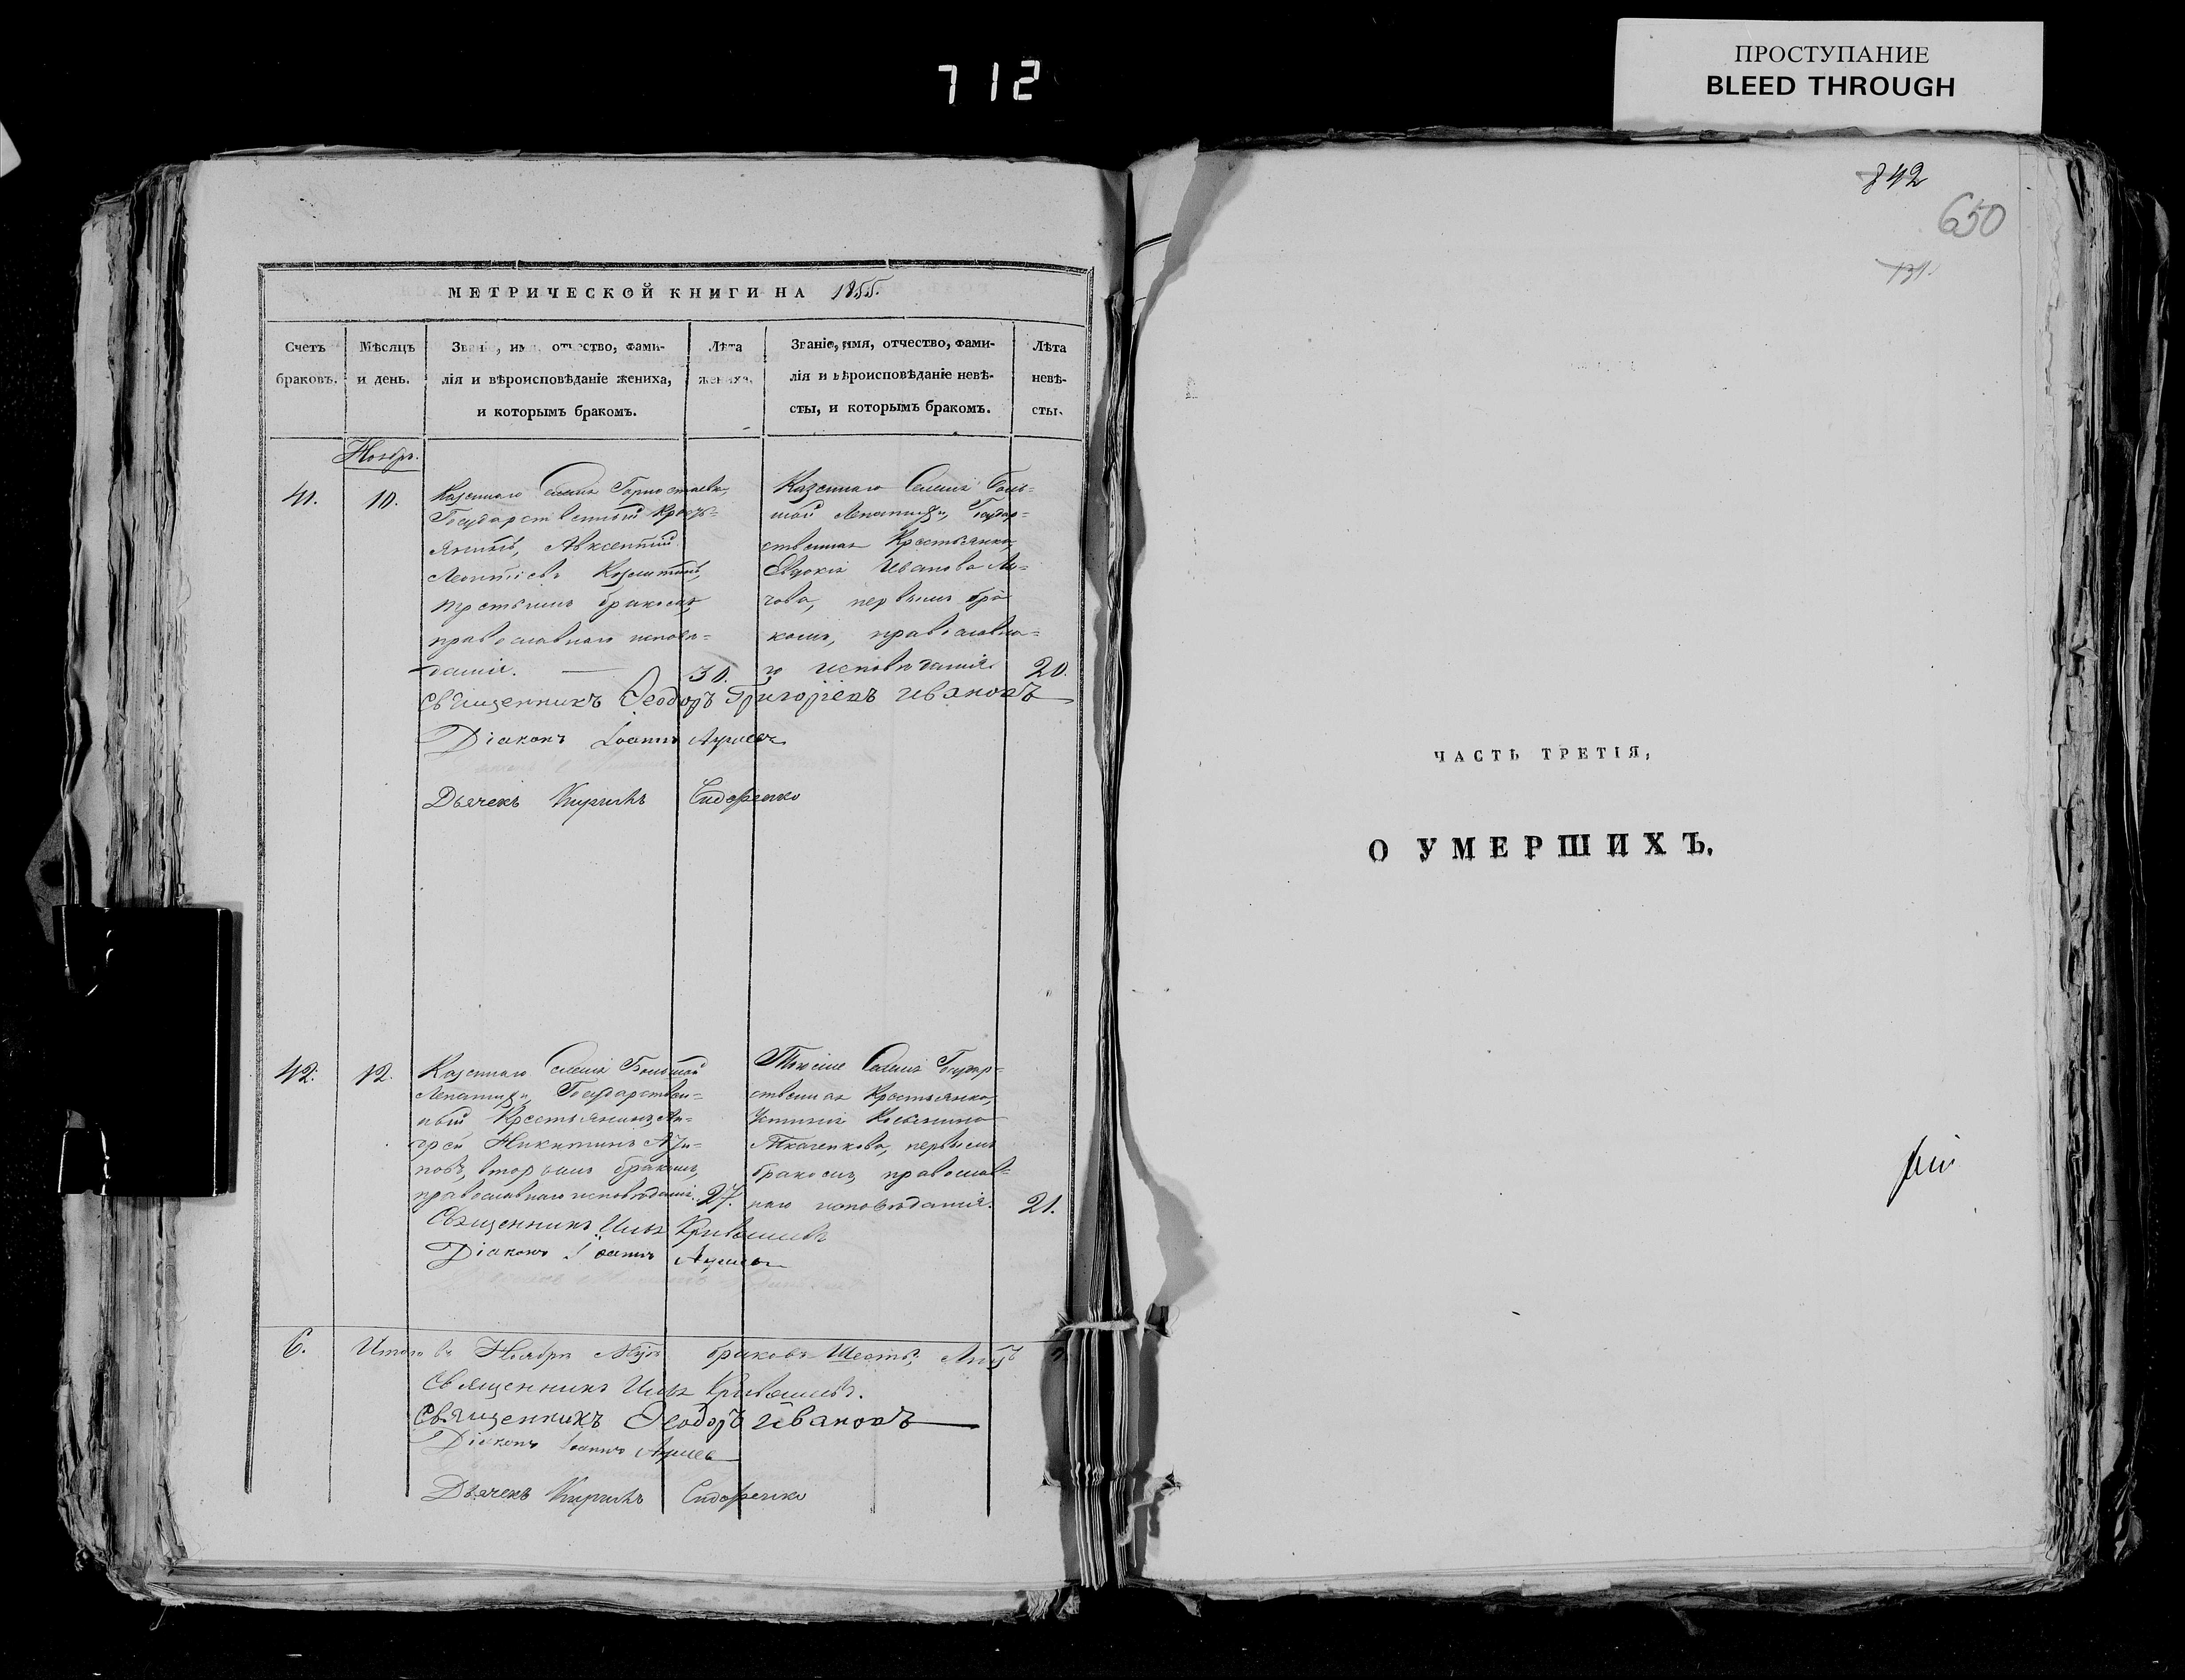 712
ПРОСТУПАНИЕ
BLEED THROUGH
МЕТРИЧЕСКОЙ КНИГИ НА 1855.
Счетъ браковъ.
Мѣсяцъ и день.
Званіе, имя, отчество, фами-
лія и вѣроисповѣданіе жениха,
и которымъ бракомъ.
Лѣта жениха.
Званіе, имя, отчество, фами-
лія и вѣроисповѣданіе невѣ-
сты, и которымъ бракомъ.
Лѣта невѣ-
сты.
Ноябрь.
41.
10.
Казеннаго Селенія Горностаевки,
Государственный Кресть-
янинъ, Авксентій
Леонтіевъ
третьимъ бракомъ,
православнаго исповѣ-
данія.
30.
Казеннаго Селенія Боль-
шой Лепатихи, Государ-
ственная Крестьянка,
Евдокія Иванова
первымъ бра
комъ, православна-
го исповѣданія.
20.
Священникъ Ѳеодоръ Григоріевъ Ивановъ
Діаконъ Іоаннъ
Дьячекъ Кириллъ Сидоренко
42.
12.
Казеннаго Селенія Большой
Лепатихи, Государствен-
ный Крестьянинъ Ан-
дрей Никитинъ
вторымъ бракомъ,
православнаго исповѣданія.
27.
Тогоже Селенія Государ-
ственная Крестьянка,
Устинія
Ткаченкова, первымъ
бракомъ, православ-
наго исповѣданія.
21.
Священникъ Илья
Діаконъ Іоаннъ
6.
Итого въ Ноябрѣ браковъ Шесть.
Священникъ Илья
Священникъ Ѳеодоръ Ивановъ
Діаконъ Іоаннъ
Дьячекъ Кириллъ Сидоренко
842
650
131.
ЧАСТЬ ТРЕТІЯ,
О УМЕРШИХЪ.